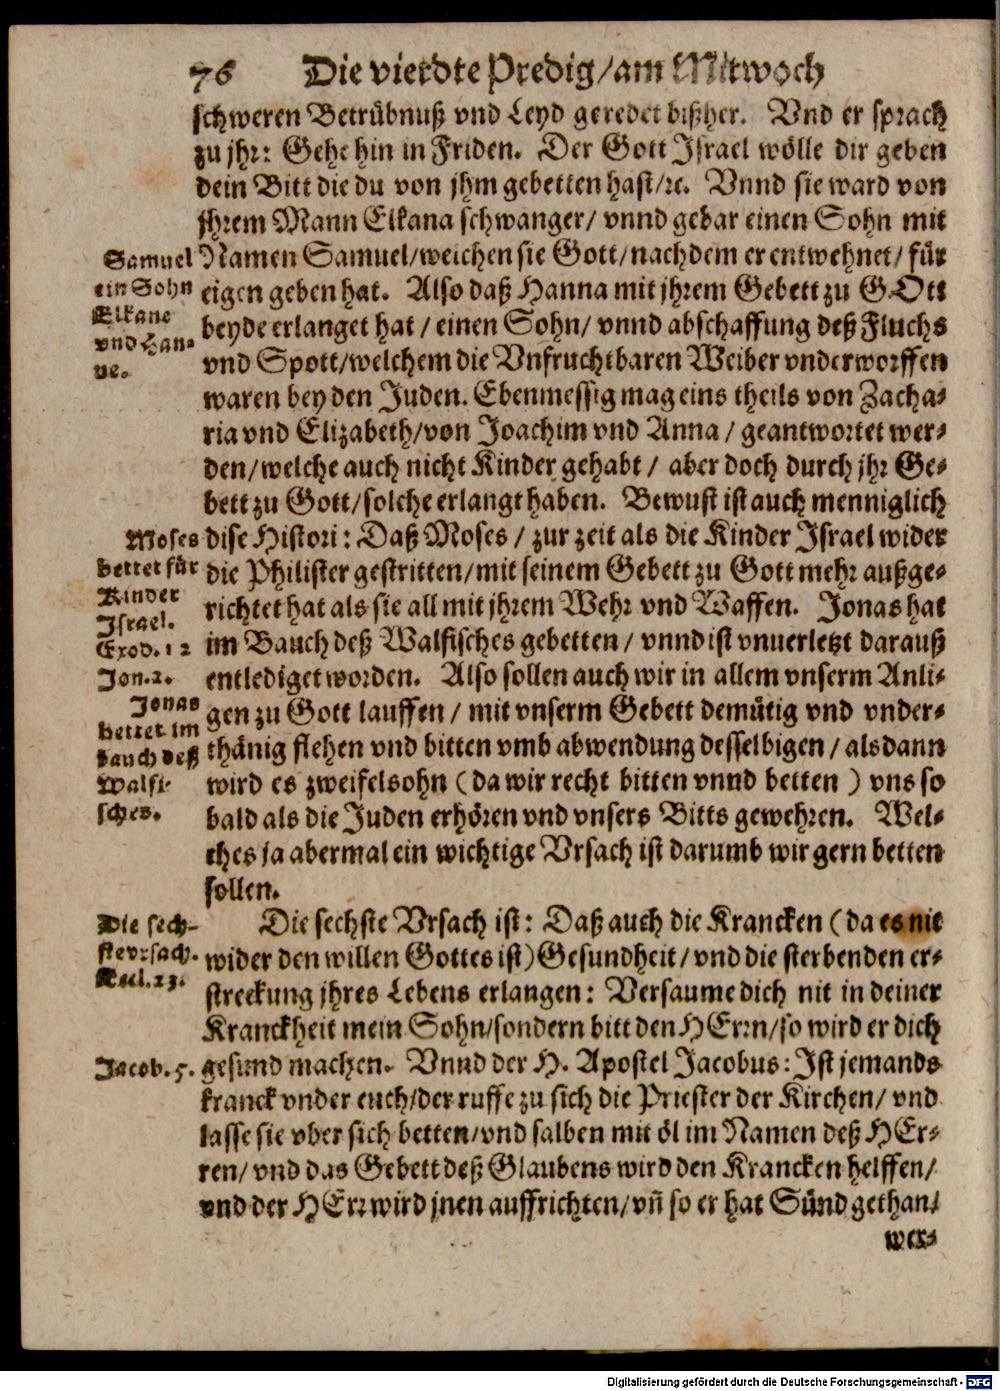 76 Die vierdte Predig/am Mitwoch
schweren Betrübnuß vnd Leyd geredet bißher. Vnd er sprach
zu jhr: Gehe hin in Friden. Der Gott Israel wölle dir geben
dein Bitt die du von jhm gebetten hast/ꝛc. Vnnd sie ward von
jhrem Mann Elkana schwanger/ vnnd gebar einen Sohn mit
Namen Samuel/welchen sie Gott/nachdem er entwehnet/ für
eigen geben hat. Also daß Hanna mit jhrem Gebett zu GOtt
beyde erlanget hat / einen Sohn/ vnnd abschaffung deß Fluchs
vnd Spott/welchem die Vnfruchtbaren Weiber vnderworffen
waren bey den Juden. Ebenmessig mag eins theils von Zacha-
ria vnd Elizabeth/von Joachim vnd Anna / geantwortet wer-
den/welche auch nicht Kinder gehabt / aber doch durch jhr Ge-
bett zu Gott/solche erlangt haben. Bewust ist auch menniglich
dise Histori: Daß Moses / zur zeit als die Kinder Israel wider
die Philister gestritten/mit seinem Gebett zu Gott mehr außge-
richtet hat als sie all mit jhrem Wehr vnd Waffen. Jonas hat
im Bauch deß Walfisches gebetten / vnnd ist vnuerletzt darauß
entlediget worden. Also sollen auch wir in allem vnserm Anli-
gen zu Gott lauffen / mit vnserm Gebett demütig vnd vnder-
thänig flehen vnd bitten vmb abwendung desselbigen / als dann
wird es zweifelsohn (da wir recht bitten vnnd betten ) vns so
bald als die Juden erhören vnd vnsers Bitts gewehren. Wel-
ches ja abermal ein wichtige Vrsach ist darumb wir gern betten
sollen.
Die sechste Vrsach ist: Daß auch die Krancken (da es nit
wider den willen Gottes ist) Gesundheit/ vnd die sterbenden er-
streckung jhres Lebens erlangen: Versaume dich nit in deiner
Kranckheit mein Sohn/sondern bitt den HErrn/so wird er dich
gesund machen. Vnnd der H. Apostel Jacobus: Ist jemands
kranck vnder euch/der ruffe zu sich die Priester der Kirchen/ vnd
lasse sie vber sich betten/vnd salben mit öl im Namen deß HEr-
ren/ vnd das Gebett deß Glaubens wird den Krancken helffen/
vnd der HErr wird jnen auffrichten/vñ so er hat Sünd gethan/
wer-
Samuel
ein Sohn
Elkane
vnd Han-
ne.
Moses
bettet für
Kinder
Israel.
Exod. 12
Jon. 2.
Jonas
bettet im
bauch deß
Walfi-
sches.
Die sech-
ste vrsach.
Eccl. 23.
Jacob. 5.
Digitalisierung gefördert durch die Deutsche Forschungsgemeinschaft - DFG